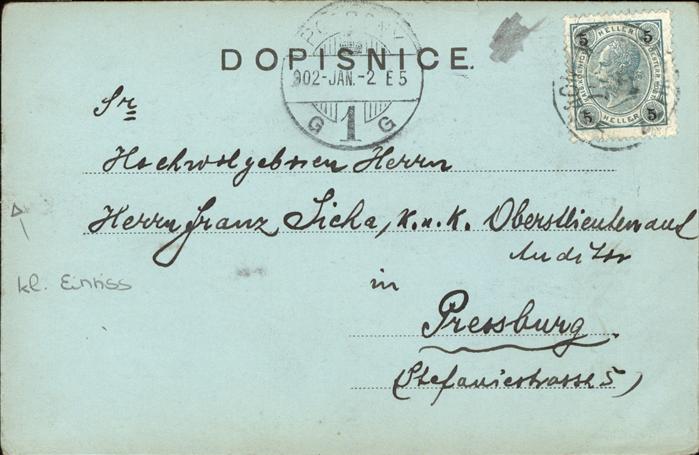 DOPISNICE.
POZSONY
902-JAN.-2 E 5
G 1 G
5 HELLER 5
5 HELLER 5
Sr
Hochwolgeboren Herrn
Herrn Franz Sicha, k. u. k. Oberstlieutenant
Auditor
in
Pressburg
(Stefaniestrasse 5)
kl. Einriss